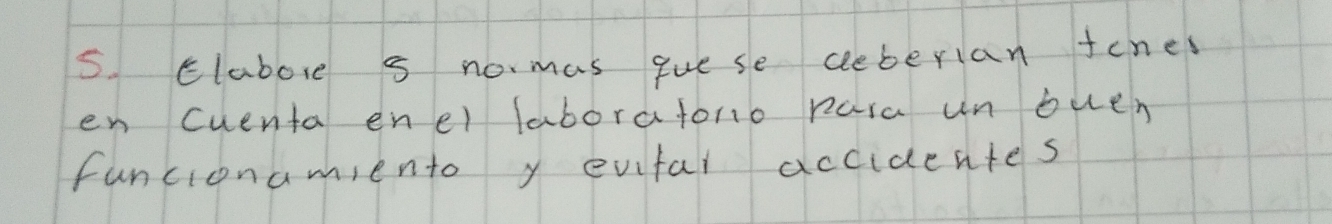 5. Elabore 5 normas que se deberian tener
en cuenta en el laboratorio para un buen
funcionamiento y evitar accidentes